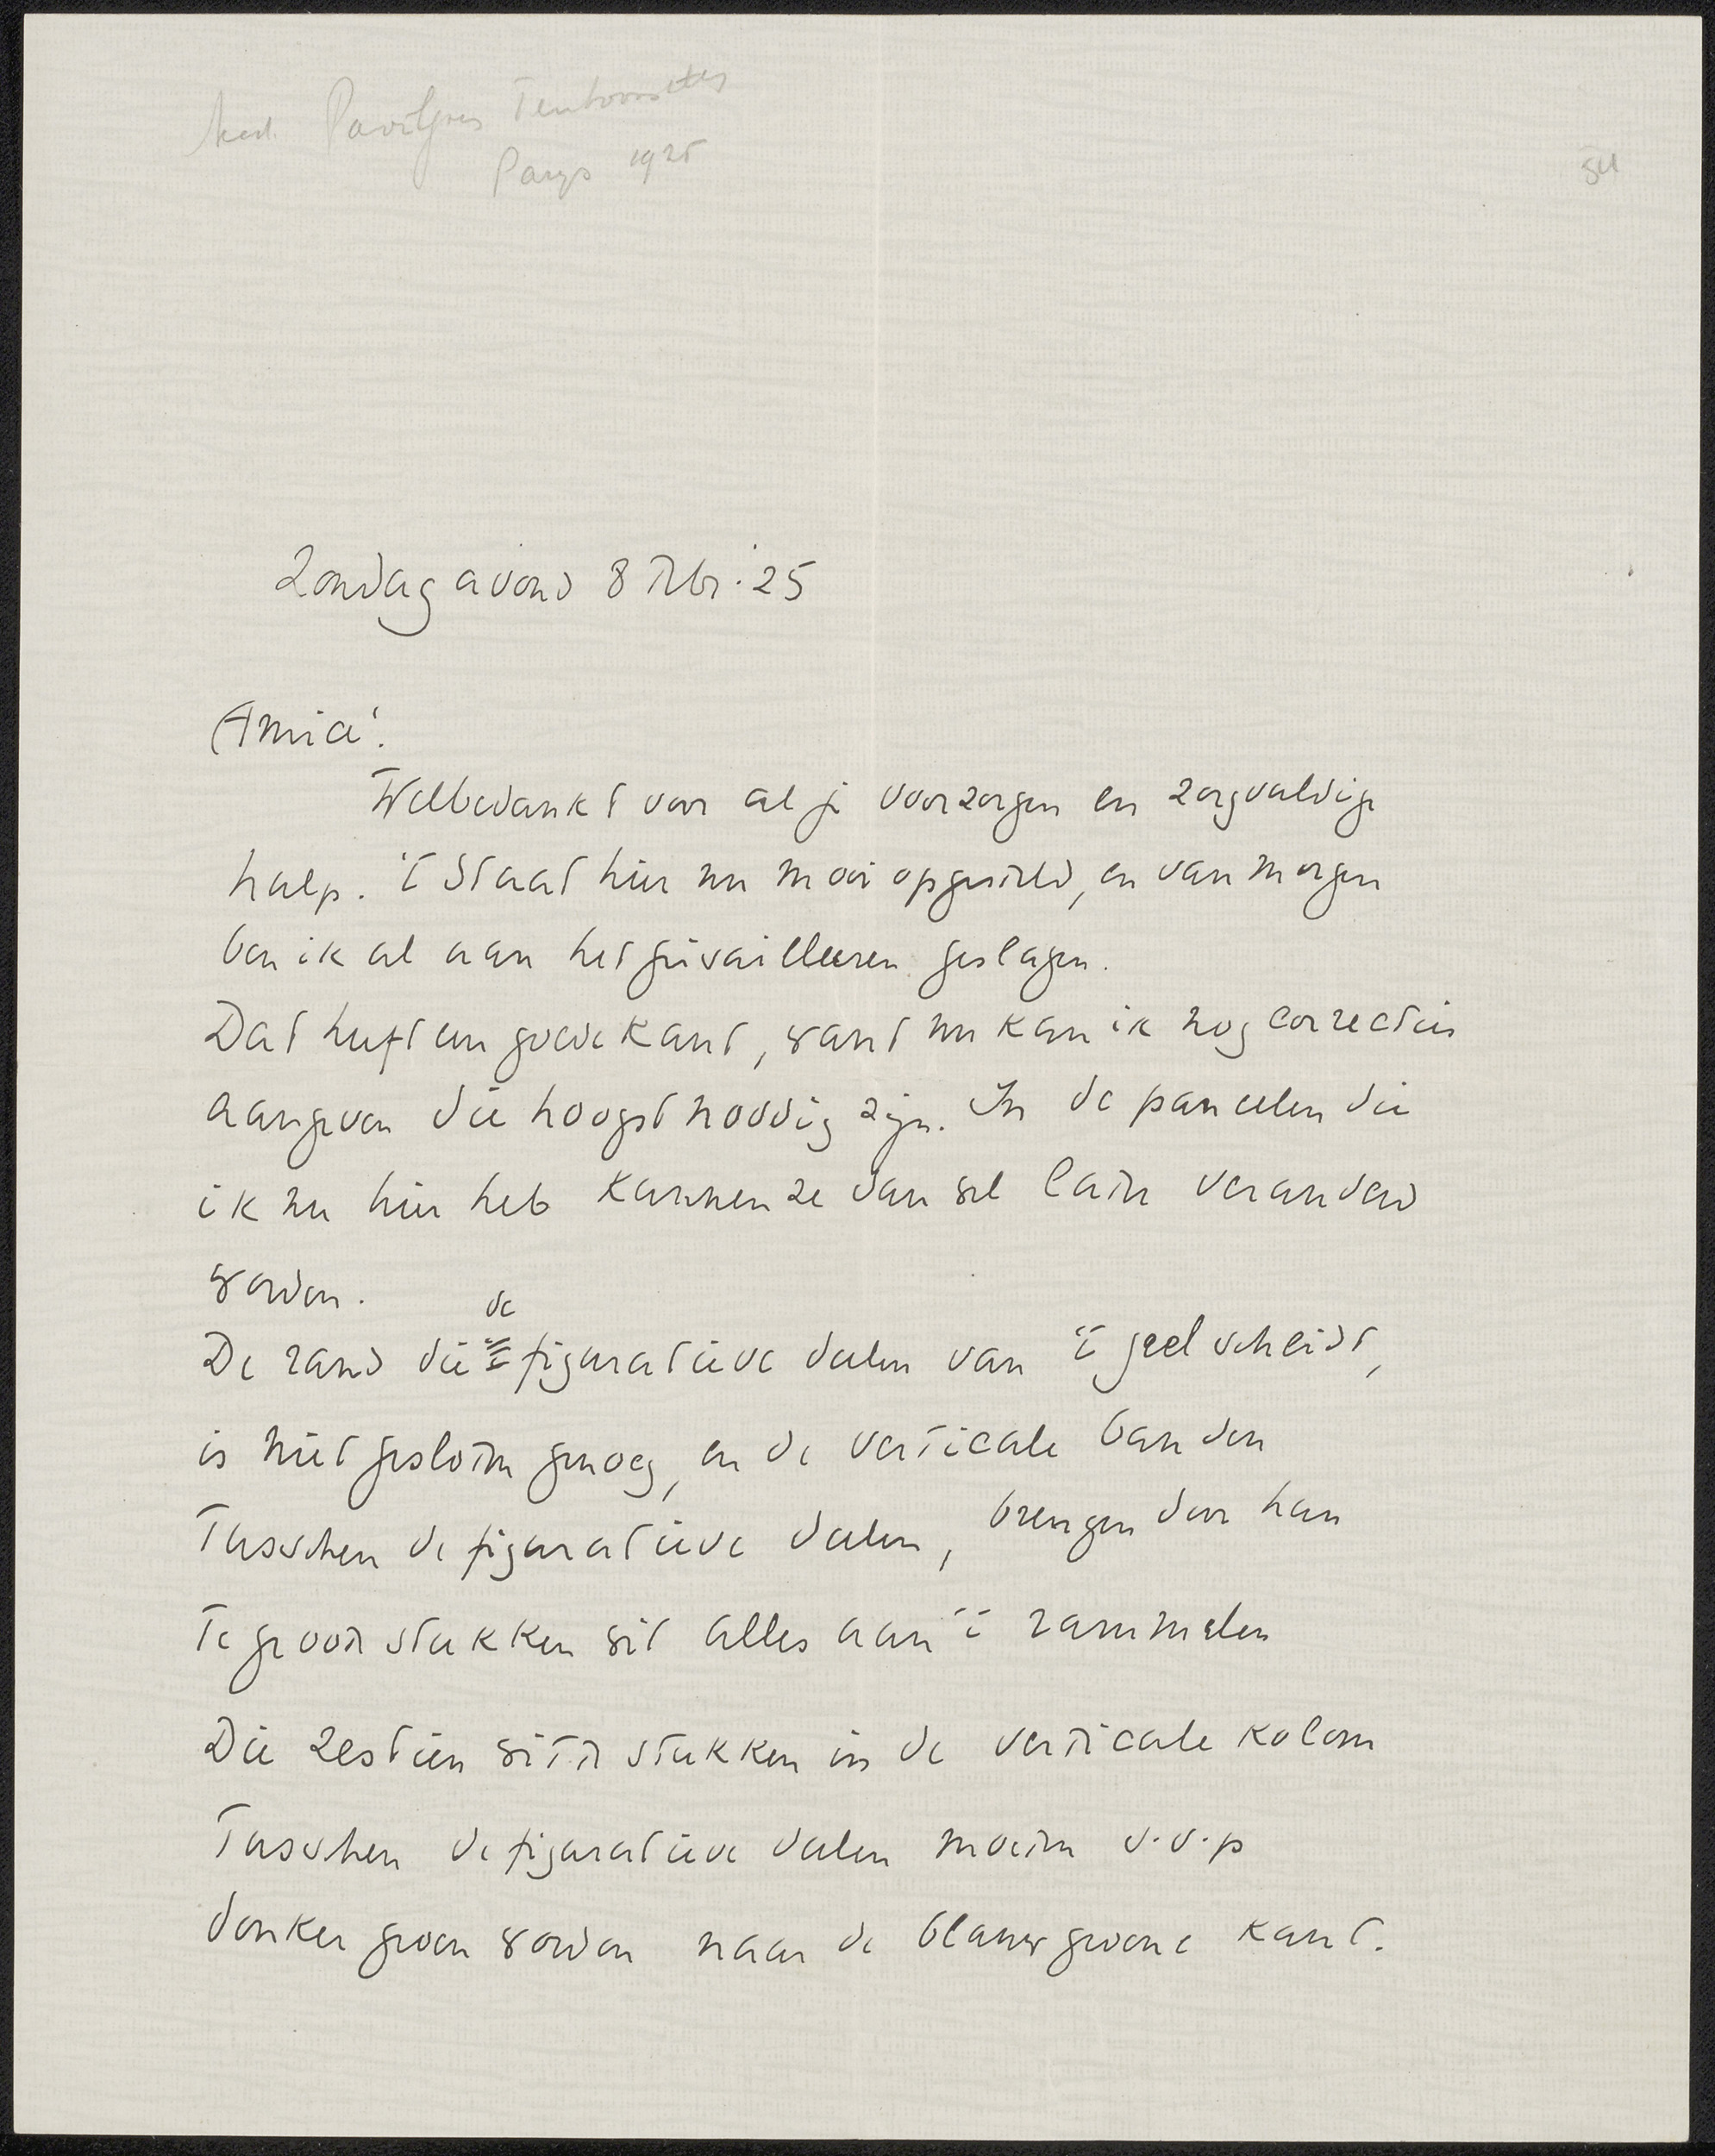 Ned. Paviljoen Tentoonst
Parys 1925
54
Zondag avond 8 Nbr. 25
Amice!
Welbedankt voor al je voorzorgen en zorgvuldige
hulp. 't Staat hier nu mooi opgesteld, en van morgen
ben ik al aan het travailleeren geslagen.
Dat heeft een goede kant, want nu kan ik nog correcties
aangeven die hoogst noodig zijn. In de paneelen die
ik nu hier heb kunnen ze dan wel later veranderd
worden.
De rand die de figuratieve deelen van 't geel scheidt,
is niet gesloten genoeg, en de verticale banden
Tusschen de figuratieve deelen, brengen door hun
Te groote stukken wit alles aan 't rammelen
Die zestien witte stukken in de verticale kolom
Tusschen de figuratieve deelen moeten d.d.p
donker groen worden naar de blauwgroene kant.